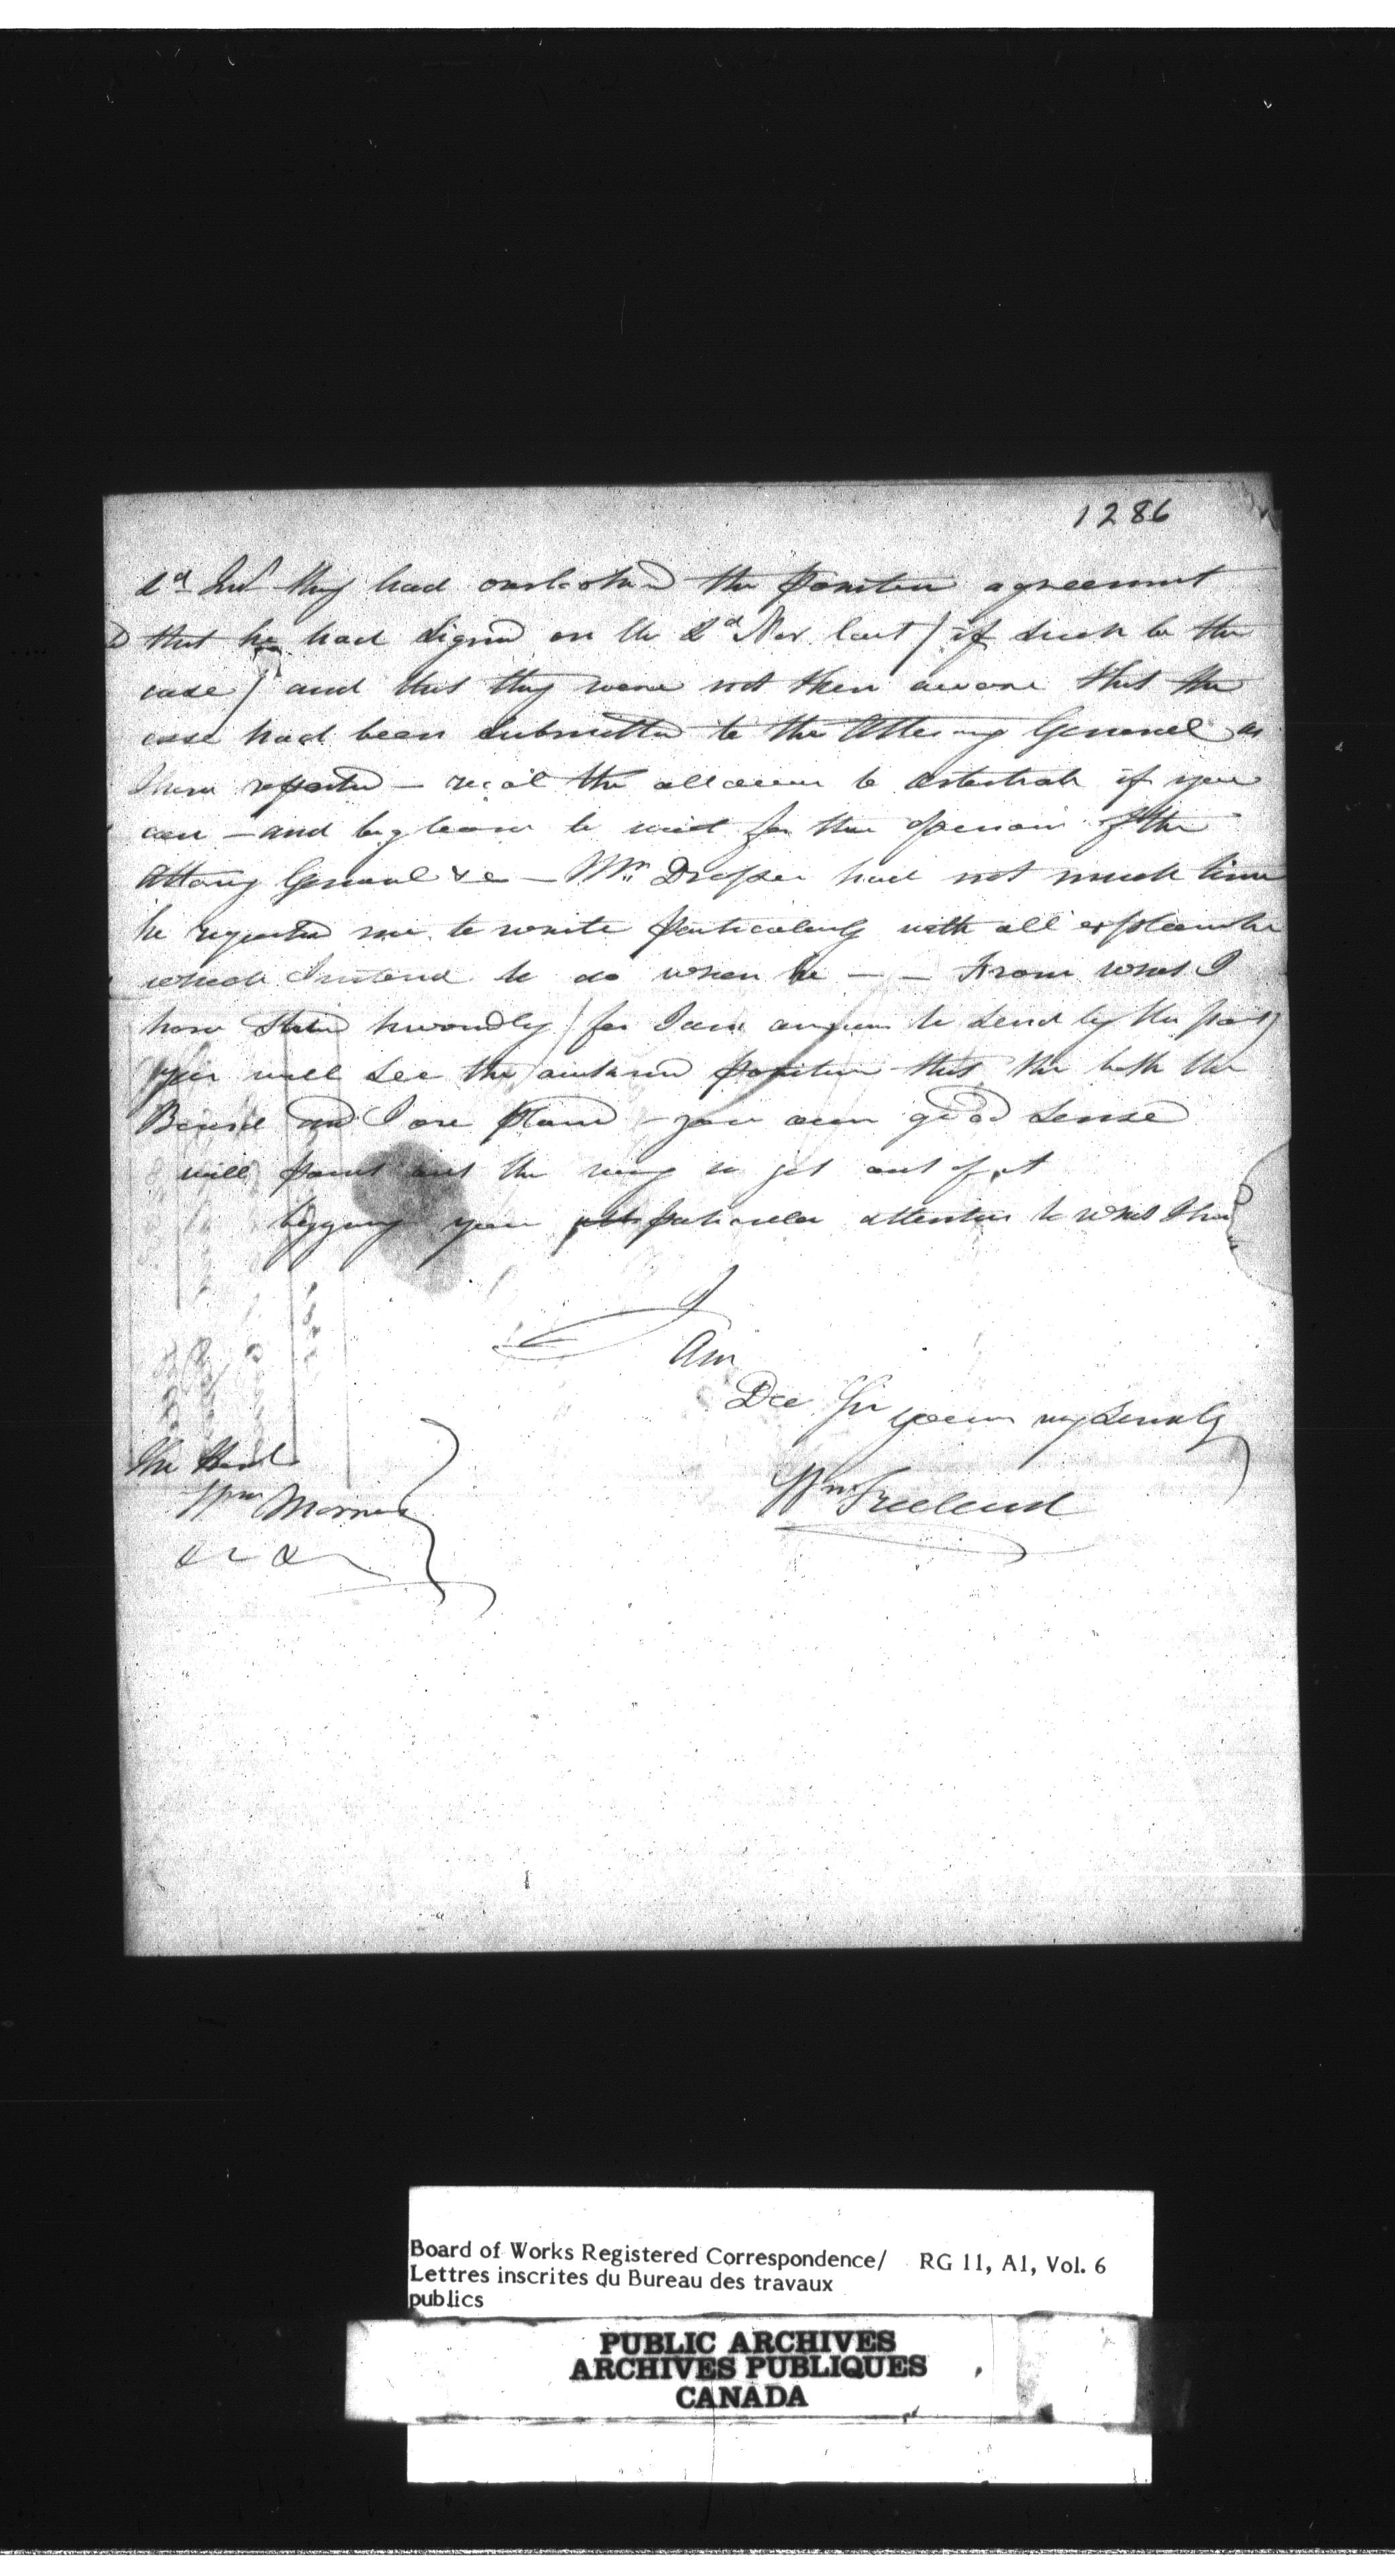 1286
2d Inst they had overlooked the positive agreement
that he had signed on the 2d Nov. last / if such be the
case / and that they were not then aware that the
case had been submitted to the Attorney General as
I have reported — recal the allowance to if you
can — and beg leave to wait for the opinion of the
Attorny General &c — Mr Draper had not much time
he requested me to write particularly with all
which I intend to do when he — — From what I
have stated hurridly / for I am anxious to send by this post /
you will see the aukward position that the both the
Board and I are placed — your own good sense
will point out the way to get out of it
begging your particular attention to what I have
I
Am
Dear Sir yours very Sincerely
Wm Freeland
The Hon
Wm Morris
&c &
Board of Works Registered Correspondence/ RG 11, A1, Vol. 6
Lettres inscrites du Bureau des travaux
publics
PUBLIC ARCHIVES
ARCHIVES PUBLIQUES
CANADA